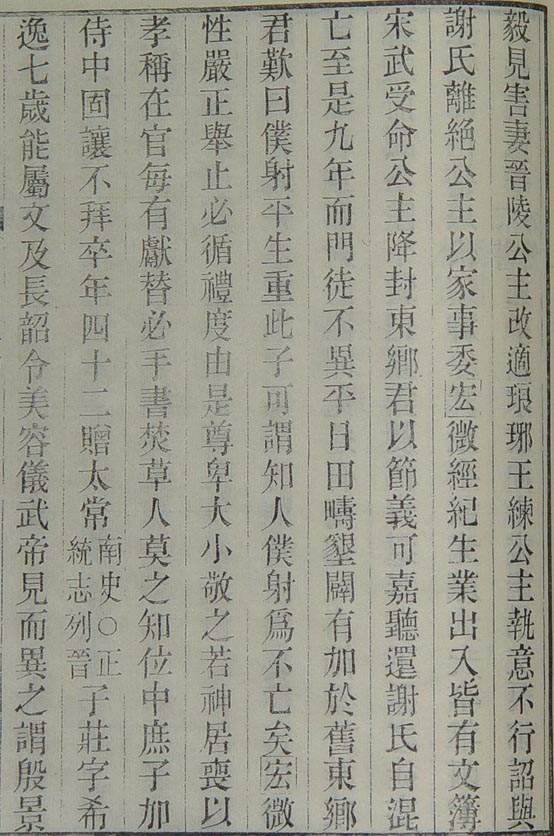 毅見害妻晉陵公主改適琅琊王練公主執意不行詔與
謝氏離絕公主以家事委宏微經紀生業出入皆有文簿
宋武受命公主降封東鄉君以節義可嘉聽還謝氏自混
亡至是九年而門徒不異平日田疇墾闢有加於舊東鄉
君歎曰僕射平生重此子可謂知人僕射爲不亡矣宏微
性嚴正舉止必循禮度由是尊卑大小敬之若神居喪以
孝稱在官每有獻替必手書焚草人莫之知位中庶子加
侍中固讓不拜卒年四十二贈太常南史○正統志列晉子莊字希
逸七歲能屬文及長韶令美容儀武帝見而異之謂殷景